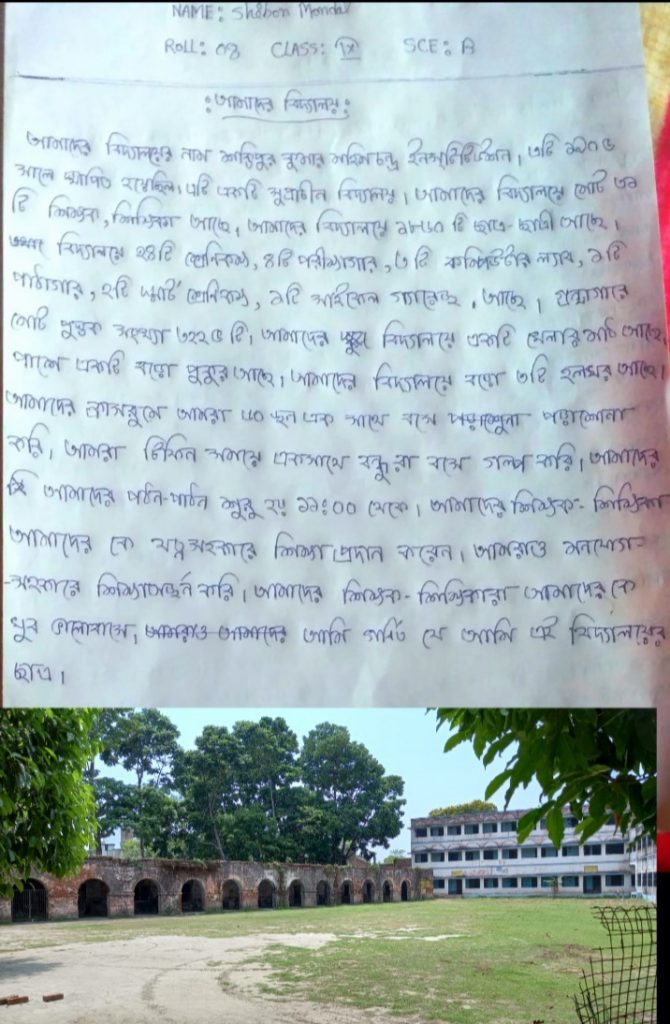 NAME: Shabon Mondal
ROLL: 08 CLASS: IX SCE: A
:আমাদের বিদ্যালয়:
আমাদের বিদ্যালয়ের নাম শক্তিপুর কুমার মহিমচন্দ্র ইনস্টিটিউশন। এটি ১৯০৫
সালে স্থাপিত হয়েছিল। এটি একটি সুপ্রাচীন বিদ্যালয়। আমাদের বিদ্যালয়ে মোট ৩৯
টি শিক্ষক, শিক্ষিকা আছে। আমাদের বিদ্যালয়ে ১৮৬০ টি ছাত্র-ছাত্রী আছে।
বিদ্যালয়ে ২৪টি শ্রেনিকক্ষ, ৪টি পরীক্ষাগার, ৩টি কম্পিউটার ল্যাব, ১টি
পাঠাগার, ২টি স্মার্ট শ্রেনিকক্ষ, ১টি সাইকেল গ্যারেজ, আছে। গ্রন্থাগারে
মোট পুস্তক সংখ্যা ৩২২৫ টি। আমাদের বিদ্যালয়ে একটি খেলার মাঠ আছে
পাশে একটি বড়ো পুকুর আছে। আমাদের বিদ্যালয়ে বড়ো ৩টি হলঘর আছে।
আমাদের ক্লাসরুমে আমরা ৬০ জন এক সাথে বসে পড়াশোনা
করি। আমরা টিফিন সময়ে একসাথে বন্ধুরা বসে গল্প করি। আমাদের
আমাদের পঠন-পাঠন শুরু হয় ১১:০০ থেকে। আমাদের শিক্ষক-শিক্ষিকা
আমাদের কে যত্নসহকারে শিক্ষা প্রদান করেন। আমরাও মনযোগ-
-সহকারে শিক্ষাঅর্জন করি। আমাদের শিক্ষক-শিক্ষিকারা আমাদের কে
খুব ভালোবাসে, আমরাও আমাদের আমি গর্বিত যে আমি এই বিদ্যালয়ের
ছাত্র।